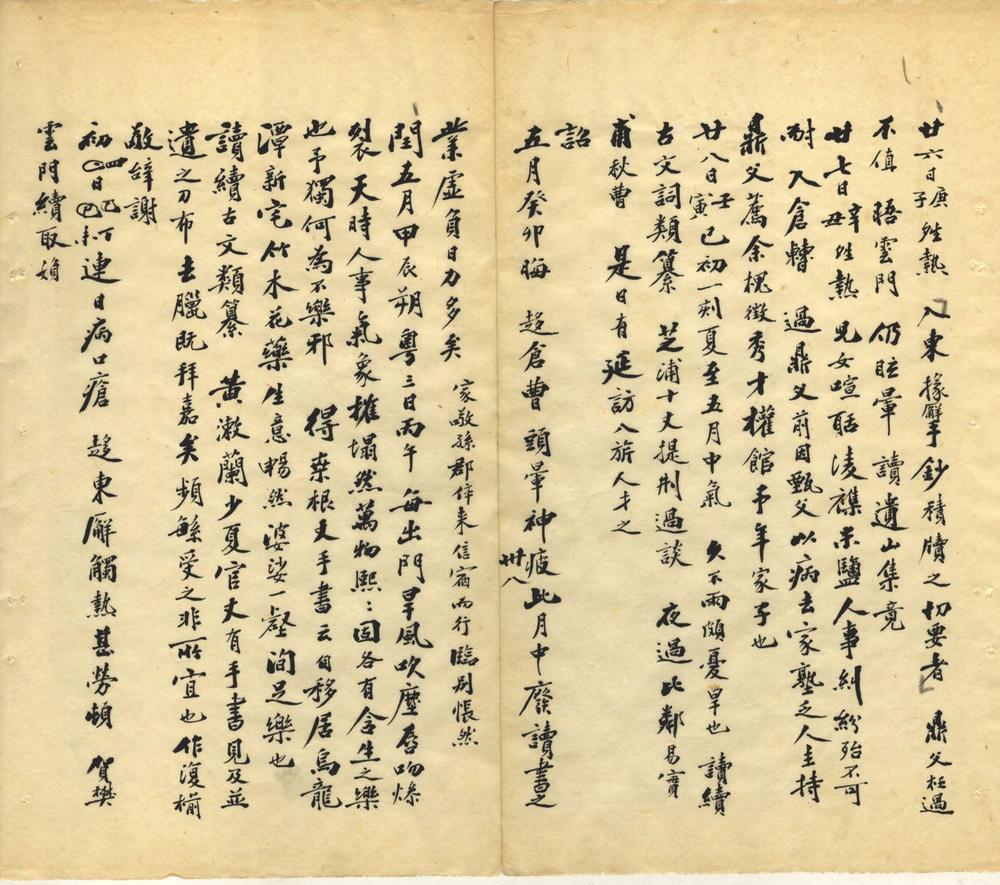 廿六日庚子 甡熱 入東掾廨手鈔積牘之切要者 鼎父枉過
不值 晤雲門 仍眩暈 讀遺山集竟
廿七日辛丑 甡熱 兒女喧聒淩襍米鹽人事糾紛殆不可
耐 入倉轉 過鼎父前因甄父以病去家塾乏人主持
鼎父薦余槐徵秀才權館予年家子也
廿八日壬寅 巳初一刻夏至五月中氣 久不雨頗憂旱也 讀續
古文詞類纂 芝浦十丈提刑過談 夜過比鄰易實
甫秋曹 是日有延訪八旂人才之
詔
五月癸卯晦 趨倉曹 頭暈神疲此月中廢讀書之
卅八
業虛負日力多矣 家敬孫郡倅來信宿而行臨別悵然
閏五月甲辰朔粵三日丙午 每出門旱風吹塵脣吻燥
裂天時人事氣象摧塌然萬物熙〻固各有含生之樂
也予獨何為不樂邪 得桒根丈手書云自移居烏龍
潭新宅竹木花藥生意暢然婆娑一壑洵足樂也
讀續古文類纂 黃漱蘭少夏官丈有手書見及並
遺之刀布去臘既拜嘉矣頻緐受之非所宜也作復楄
敬辭謝
初四日丁未連日病口瘡 趨東廨觸熱甚勞頓 賀樊
雲門續取媍